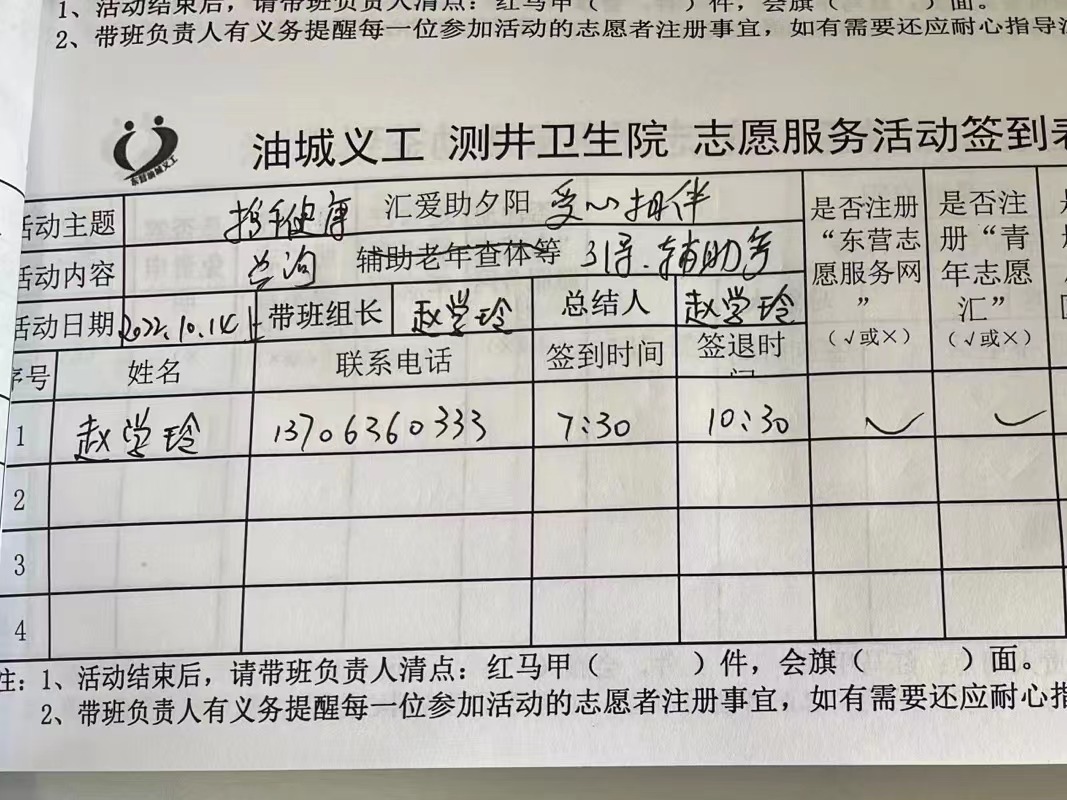 1、活动结束后，请带班负责人清点：红马甲（ ）件，会旗（ ）面。
2、带班负责人有义务提醒每一位参加活动的志愿者注册事宜，如有需要还应耐心指导
东营油城义工
油城义工 测井卫生院 志愿服务活动签到表
活动主题 携手健康 汇爱助夕阳 爱心相伴 是否注册“东营志愿服务网” （√或×） 是否注册“青年志愿汇” （√或×）
活动内容 咨询 辅助老年查体等 引导、辅助等
活动日期 2022.10.14上 带班组长 赵学玲 总结人 赵学玲
序号 姓名 联系电话 签到时间 签退时间
1 赵学玲 13706360333 7:30 10:30 ✓ ✓
2
3
4
注：1、活动结束后，请带班负责人清点：红马甲（ ）件，会旗（ ）面。
2、带班负责人有义务提醒每一位参加活动的志愿者注册事宜，如有需要还应耐心指